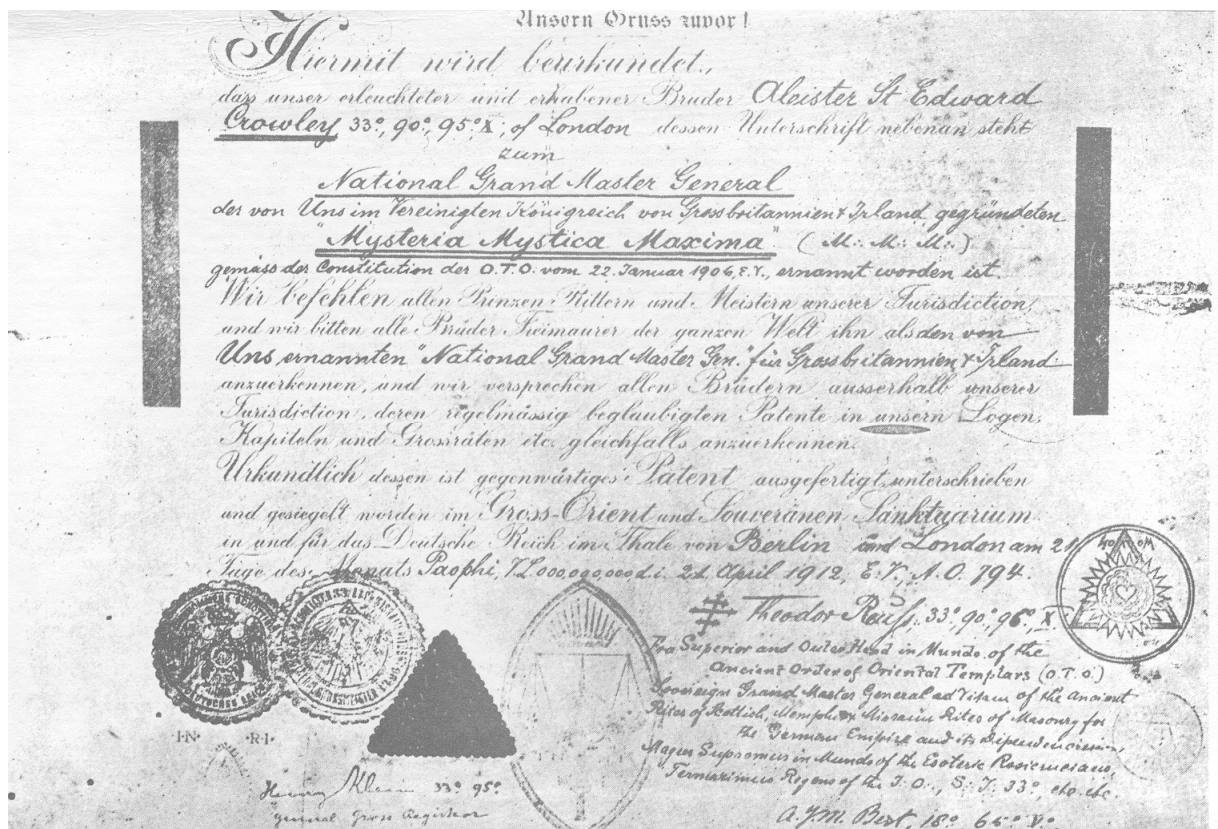 Unsern Gruss zuvor!
Hiermit wird beurkundet,
dass unser erleuchteter und erhabener Bruder Aleister St Edward
Crowley 33°, 90°, 95° X°, of London dessen Unterschrift nebenan steht
zum
National Grand Master General
der von Uns im Vereinigten Königreich von Grossbritannien & Irland gegründeten
"Mysteria Mystica Maxima" (M∴ M∴ M∴)
gemäss der Constitution der O.T.O. vom 22. Januar 1906, E.V., ernannt worden ist.
Wir befehlen allen Prinzen Rittern und Meistern unserer Jurisdiction,
und wir bitten alle Brüder Freimaurer der ganzen Welt ihn als den von
Uns ernannten "National Grand Master Gen." für Grossbritannien & Irland
anzuerkennen, und wir versprechen allen Brüdern ausserhalb unserer
Jurisdiction, deren regelmässig beglaubigten Patente in unsern Logen,
Kapiteln und Grossräten etc. gleichfalls anzuerkennen.
Urkundlich dessen ist gegenwärtiges Patent ausgefertigt, unterschrieben
und gesiegelt worden im Gross-Orient und Souveränen Sanktuarium
in und für das Deutsche Reich im Thale von Berlin und London am 21
Tage des Monats Paophi, 000,000,000 d.i. 21 April 1912, E.V., A.O. 794.
Theodor Reuss, 33° 90° 96°, X°
Fra Superior and Outer Head in Mundo of the
Ancient Order of Oriental Templars (O.T.O.)
Sovereign Grand Master General ad Vitam of the Ancient
Rites of Scottish, Memphis & Misraim Rites of Masonry for
the German Empire and its Dependencies,
Magus Supremus in Mundo of the Esoteric Rosicrucians,
I·N· ·R·I·
Henry Klein 33° 95°
General Gross Registrar